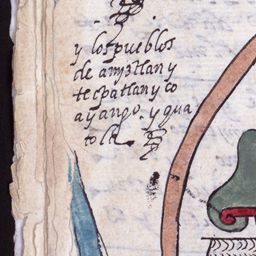 y los pueblos
de amiztlan y
tecpatlan y co
ayango. y gua
tola